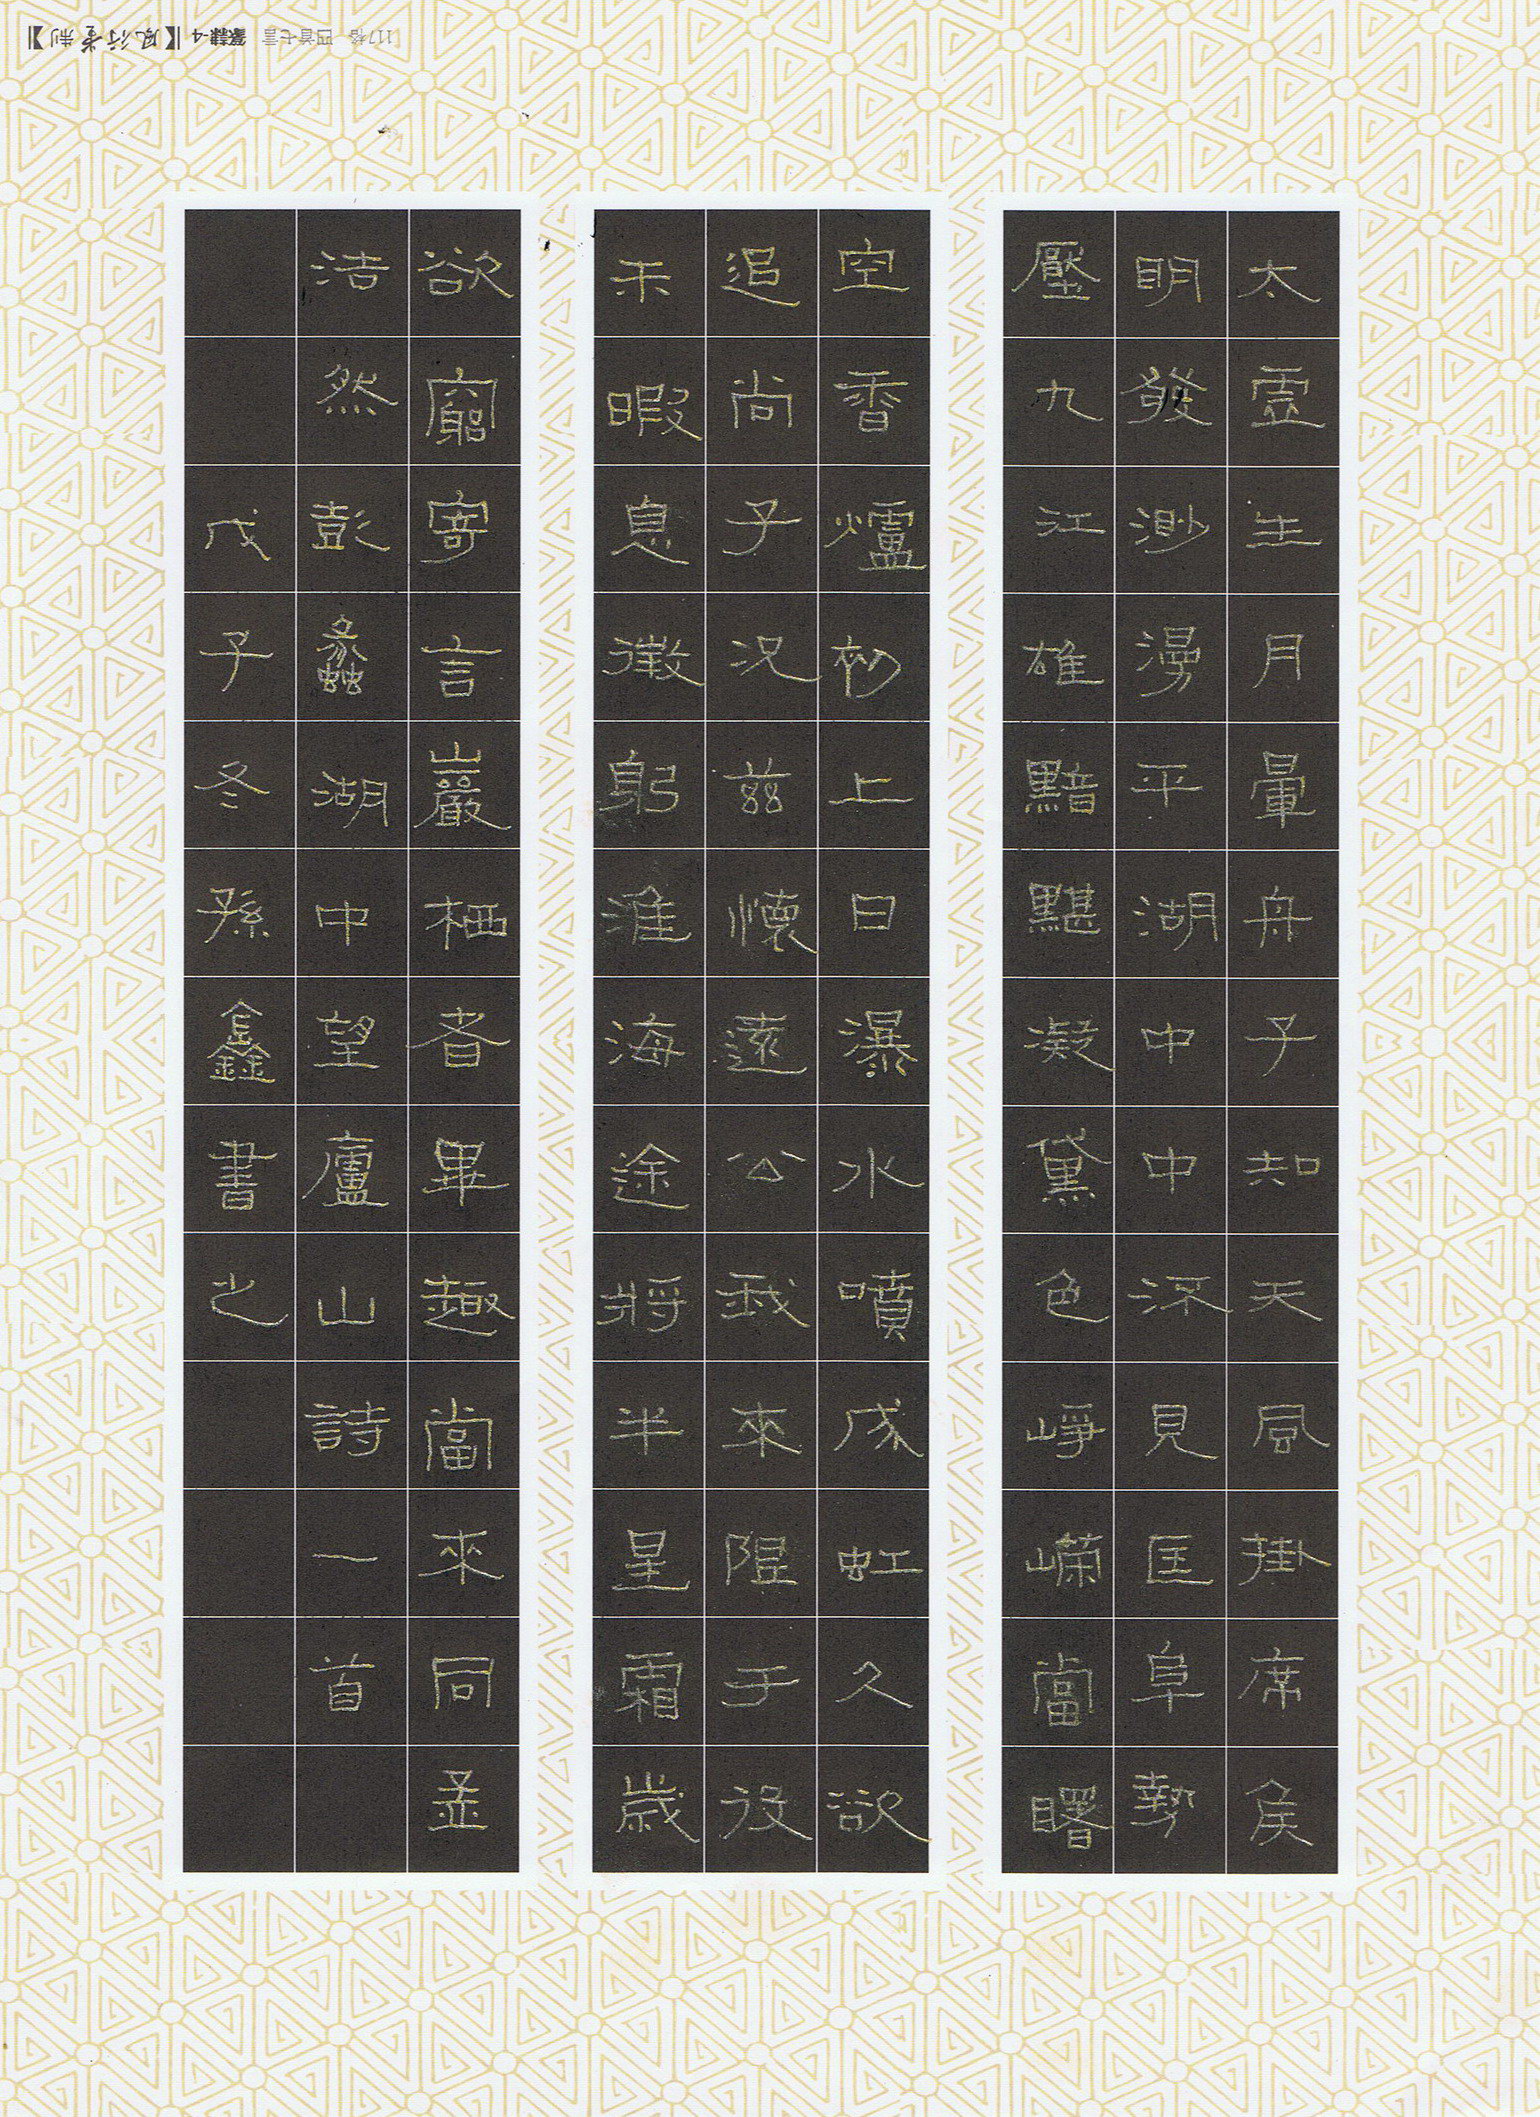 太虛生月暈舟子知天風掛席候
明發渺漫平湖中中流見匡阜勢
壓九江雄黯黮凝黛色崢嶸當曙
空香爐初上日瀑水噴成虹久欲
追尚子況茲懷遠公我來限于役
未暇息微躬淮海途將半星霜歲
欲窮寄言巖栖者畢趣當來同孟
浩然彭蠡湖中望廬山詩一首
戊子冬孫鑫書之
117格 四首七言 篆隸-4 【風行堂制】